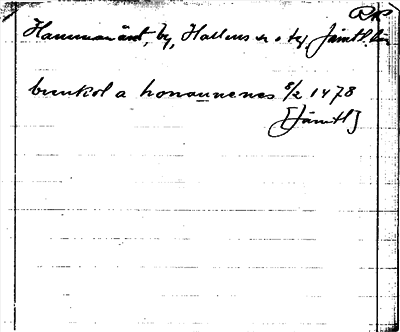 RK
Hammarnäset, by, Hallens sn o tg Jämtl. län
brenkol a honannenes 8/2 1478
[Jämtl]